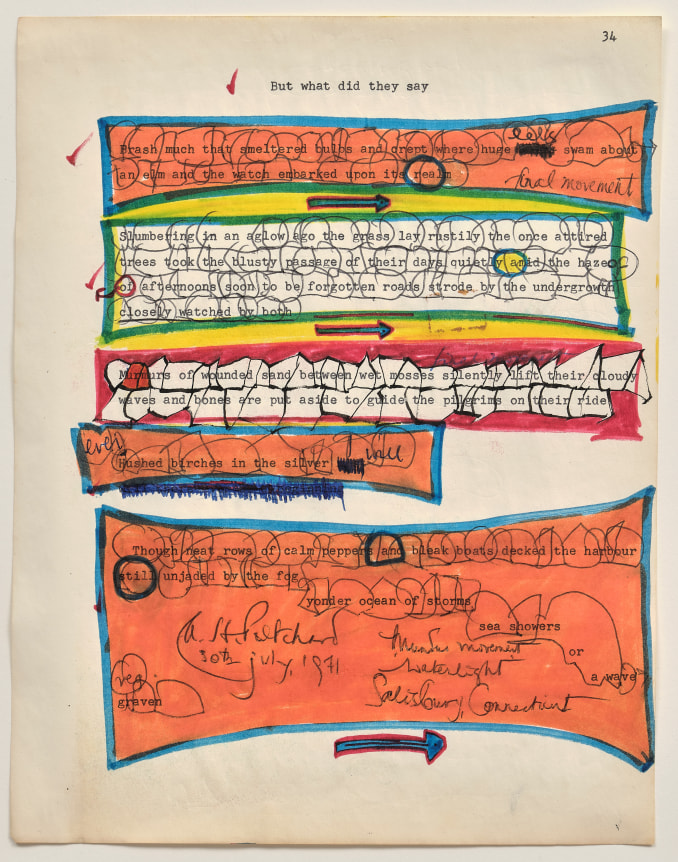 34
But what did they say
Brash much that smeltered bulbs and crept where huge eels swam about
an elm and the watch embarked upon its realm
final movement
Slumbering in an aglow ago the grass lay rustily the once attired
trees took the blusty passage of their days quietly amid the haze
of afternoons soon to be forgotten roads strode by the undergrowth
closely watched by both
Murmurs of wounded sand between wet mosses silently lift their cloudy
waves and bones are put aside to guide the pilgrims on their ride
even
Hushed birches in the silver
Though neat rows of calm peppers and bleak boats decked the harbour
still unjaded by the fog
yonder ocean of storms
sea showers
or
a wave
graven
30th july, 1971
movement
Waterlight
Salisbury, Connecticut